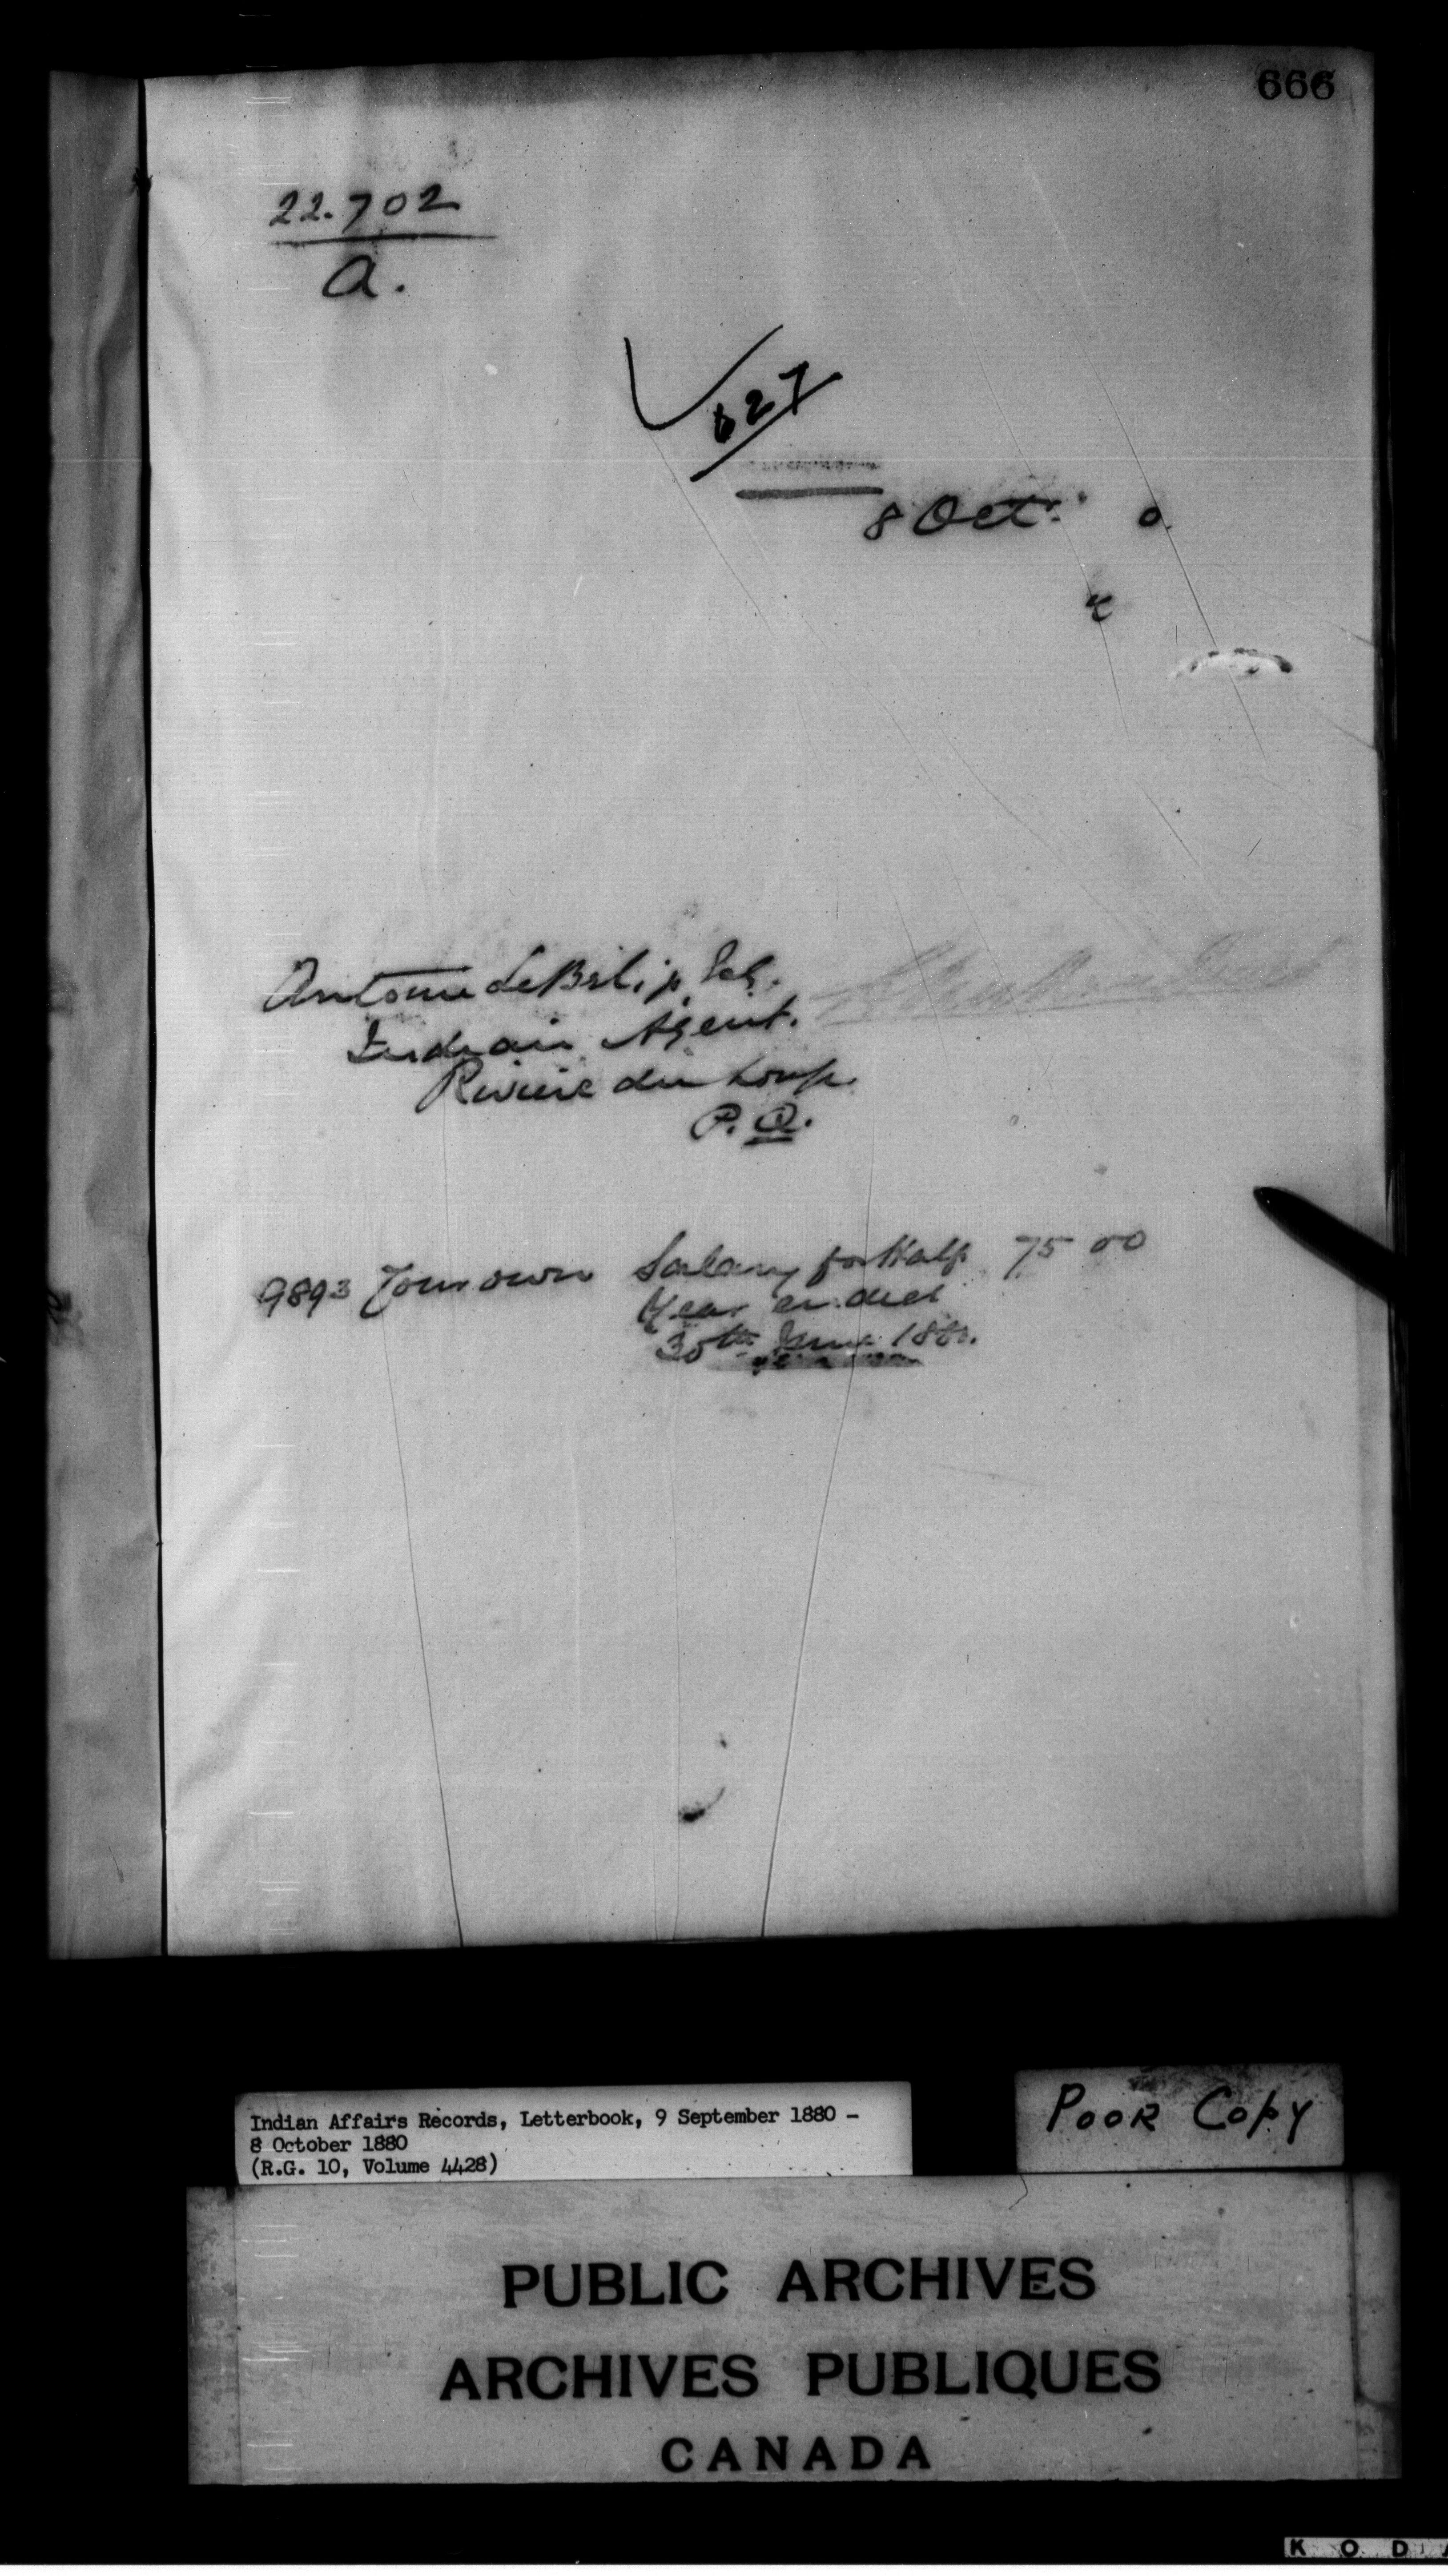 666
22.702
A.
627
8 Oct. 0.
Antoine LeBel, jr, Esq.
Indian Agent.
Riviere du Loup.
P.Q.
9893 Your own Salary for Half 75 00
Year ended
30th June 1880.
Indian Affairs Records, Letterbook, 9 September 1880 -
8 October 1880
(R.G. 10, Volume 4428)
POOR COPY
PUBLIC ARCHIVES
ARCHIVES PUBLIQUES
CANADA
K O D A